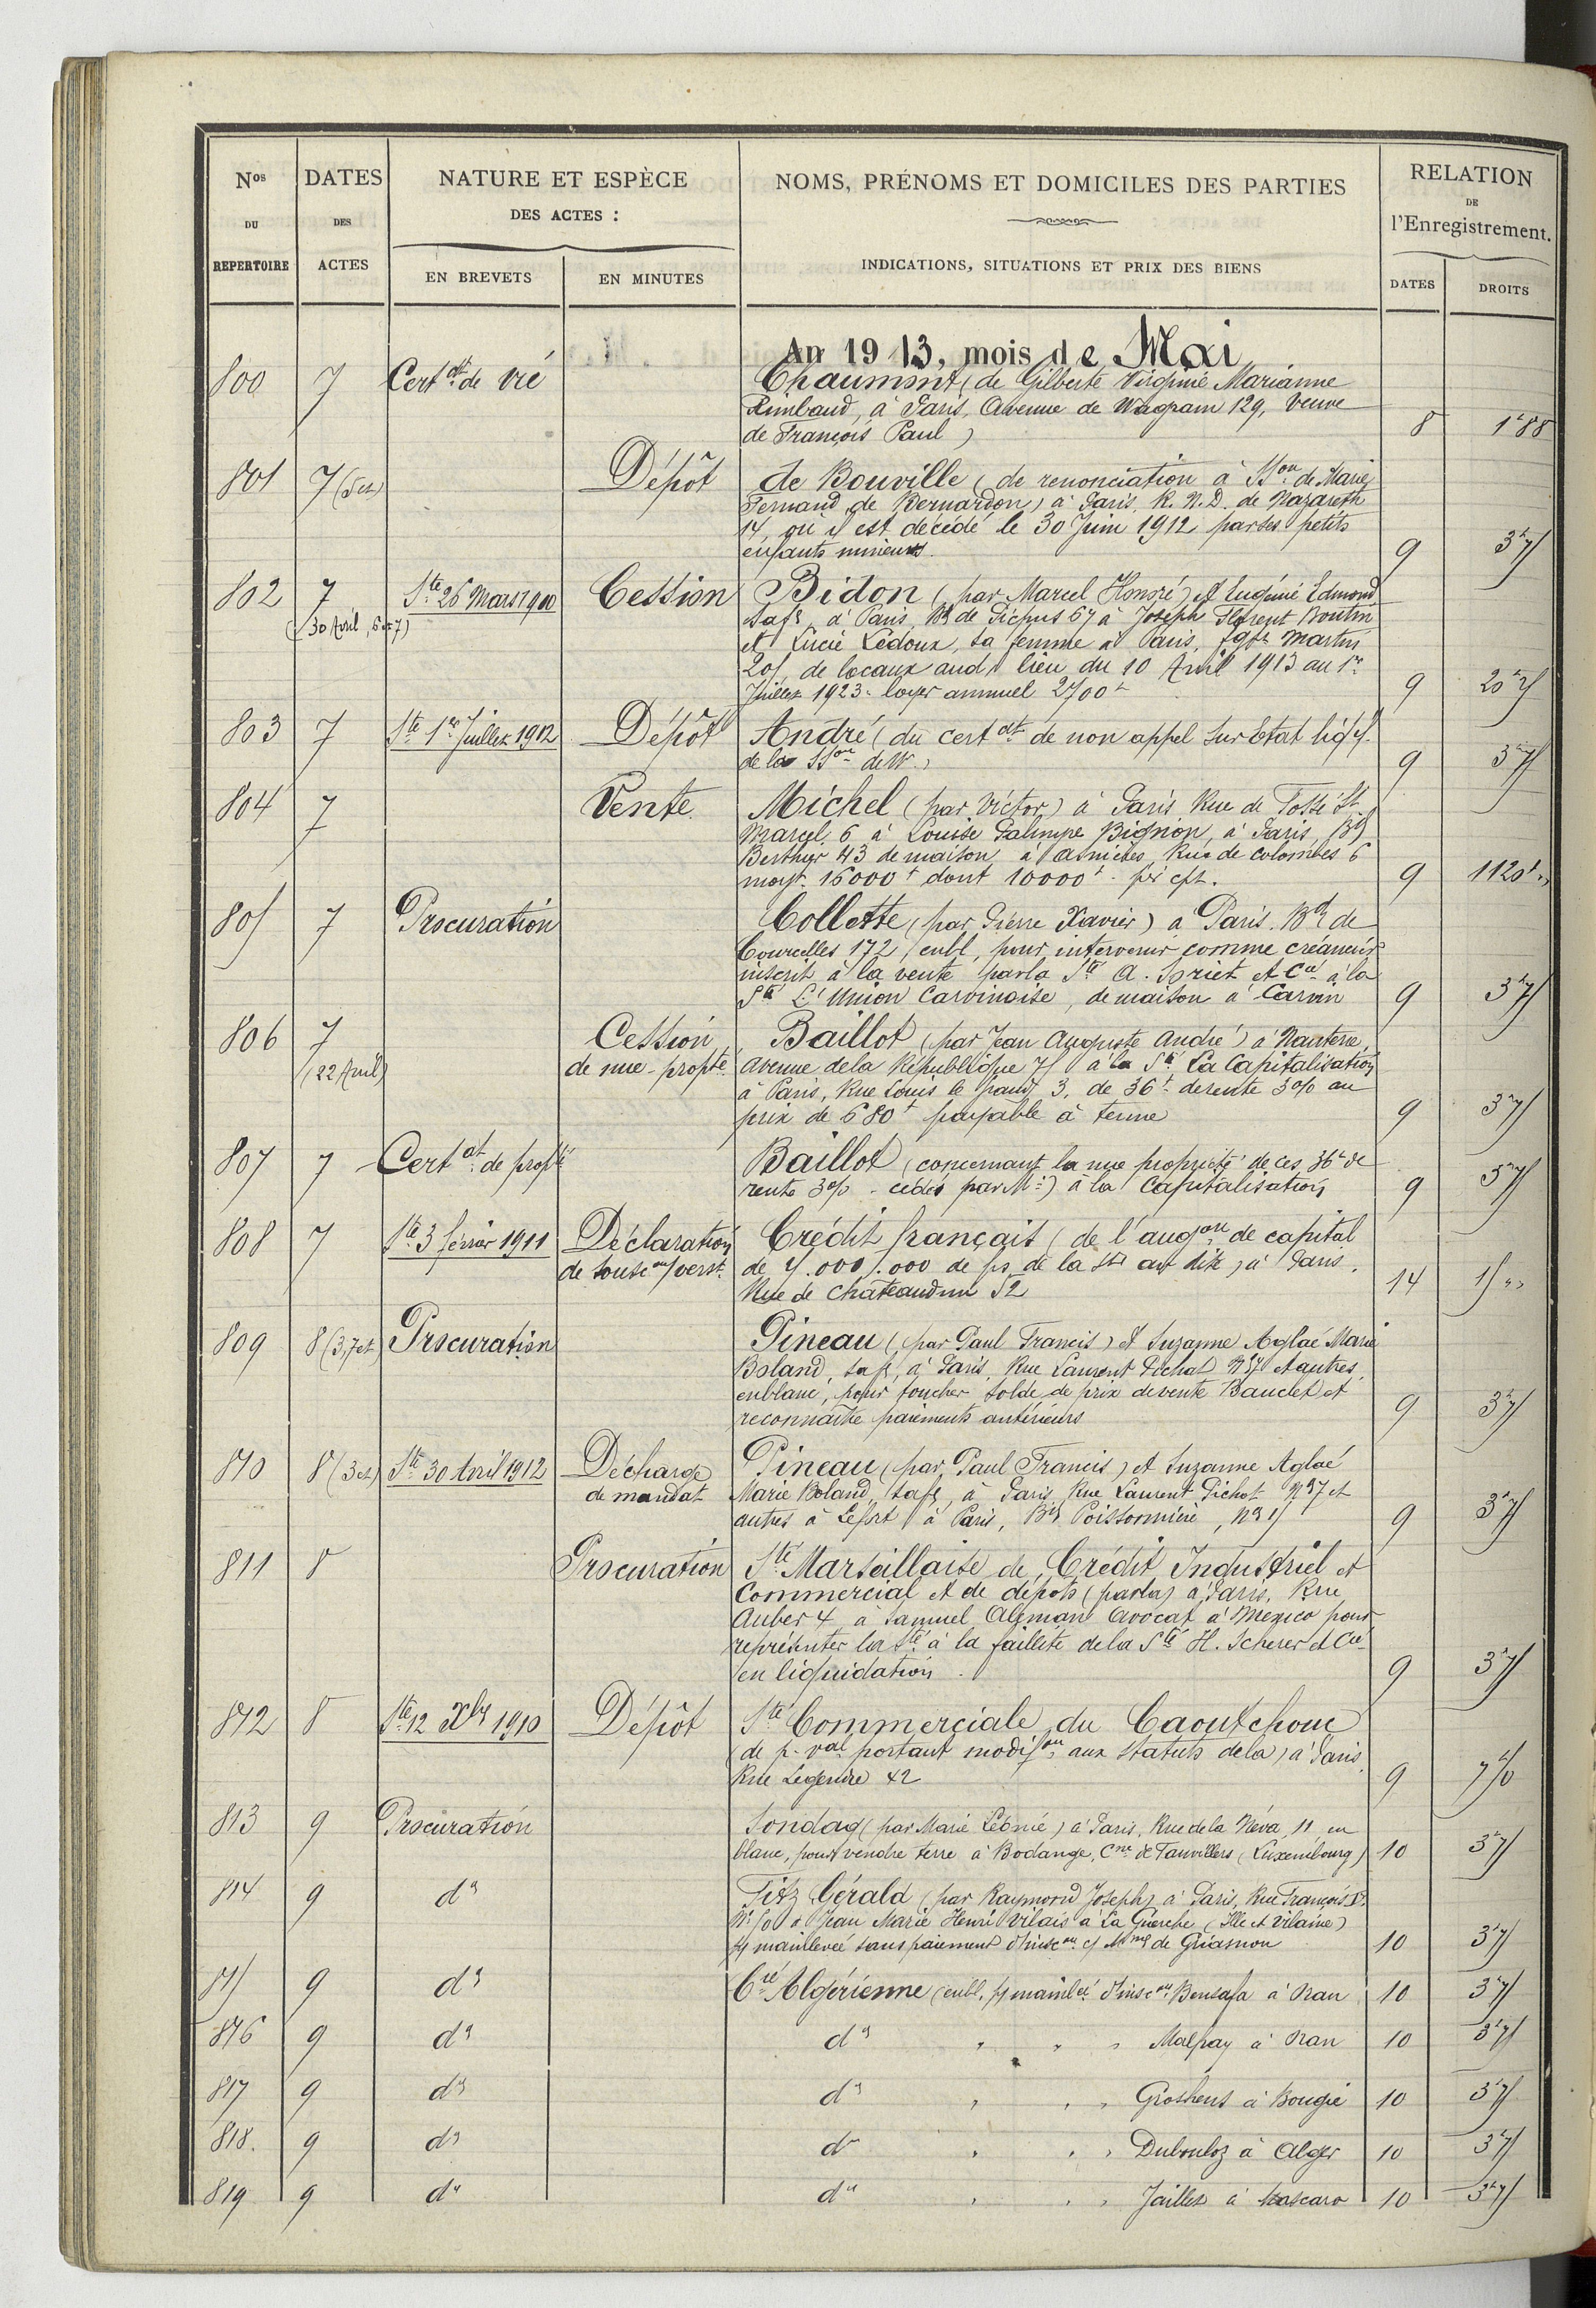 Nos DU REPERTOIRE
DATES DES ACTES
NATURE ET ESPÈCE DES ACTES :
EN BREVETS
EN MINUTES
NOMS, PRÉNOMS ET DOMICILES DES PARTIES
INDICATIONS, SITUATIONS ET PRIX DES BIENS
RELATION DE l'Enregistrement.
DATES
DROITS
An 1913, mois de Mai
800 7 Cert at de vie Chaumont (de Gilberte Virginie Marianne
Rimbaud, à Paris, Avenue de Wagram 129, veuve
de François Paul) 8 1f88
801 7 (5 et) Dépôt de Bouville (de renonciation à SSon de Marie
Fernand de Bernardon) à Paris, R. N.D. de Nazareth
14, où il est décédé le 30 Juin 1912 par ses petits
enfants mineurs. 9 3f75
802 7 Ste 26 Mars 1900 Cession Bidon (par Marcel Honoré) et Eugénie Edmond
(30 Avril, 6 et 7) sa fe, à Paris, Bd de Picpus 67 à Joseph Florent Boutin
et Lucie Ledoux, sa femme à Paris, fg St Martin
205, de locaux aud. lieu du 10 Avril 1913 au 1er
Juillet 1923. loyer annuel 2700f 9 20f75
803 7 Ste 1er Juillet 1912 Dépôt André (du cert at de non appel sur Etat liqif.
de la SSon de W.) 9 3f75
804 7 Vente Michel (par Victor) à Paris Rue de Fossé St
Marcel 6 à Louise Palmyre Bignon, à Paris, Bd
Berthier 43 de maison à Asnières, Rue de Colombes 6
moyt. 16000f dont 10000f pé cpt. 9 1120f"
805 7 Procuration Collette (par Pierre Xavier) à Paris. Bd de
Courcelles 172, enbl, pour intervenir comme créancier
inscrit à la vente par la Sté A. Soriet et Cie à la
Sté L'Union Carvinoise, de maison à Carvin 9 3f75
806 7 Cession Baillot (par Jean Auguste André) à Nanterre,
(22 Avril) de nue-propté Avenue de la République 75 à la Sté La Capitalisation
à Paris, Rue Louis le Grand 3, de 36f de rente 3% au
prix de 680f payable à terme 9 3f75
807 7 Cert at de propté Baillot (concernant la nue propriété de ces 36f de
rente 3% cédés par M.) à la Capitalisation 9 3f75
808 7 Ste 3 février 1911 Déclaration Crédit français (de l'augon de capital
de Sousc on/verst. de 5.000.000 de fs de la Sté aud dite) à Paris.
Rue de Chateaudun 52 14 15"
809 8 (3, 7 et) Procuration Pineau (par Paul Francis) et Suzanne Aglaé Marie
Boland, sa fe, à Paris, Rue Laurent Pichat N° 7 et autres,
enblanc, pour toucher solde de prix de vente Bauclet et
reconnaître paiements antérieurs 9 3f75
810 8 (3 et) Ste 30 Avril 1912 Décharge Pineau (par Paul Francis) et Suzanne Aglaé
de mandat Marie Boland, sa fe, à Paris, Rue Laurent Pichat N° 7 et
autres à Lefort à Paris, Bd Poissonnière, N° 15 9 3f75
811 8 Procuration Sté Marseillaise de Crédit Industriel et
Commercial et de dépôts (par la) à Paris, Rue
Auber 4 à Samuel Aleman Avocat à Mexico pour
représenter la Sté à la faillite de la Sté H. Scherer et Cie
en liquidation. 9 3f75
812 8 Ste 12 Xbre 1910 Dépôt Sté Commerciale du Caoutchouc
(de p-val portant modifon aux statuts de la) à Paris,
Rue Legendre 42 9 7f50
813 9 Procuration Sondag (par Marie Léonie) à Paris, Rue de la Néva, 11 en
blanc, pour vendre terre à Bodange, Cne de Fauvillers (Luxembourg) 10 3f75
814 9 do Fitz Gérald (par Raymond Joseph) à Paris, Rue François Ier
N° 50 à Jean Marie Henri Vilais à La Guerche (Ille et Vilaine)
pr mainlevée sans paiement d'insc on c/ Mme de Griasnon 10 3f75
815 9 do Cie Algérienne (enbl. pr mainlée d'insc on Bensafa à Oran 10 3f75
816 9 do do " " " Malpay à Oran 10 3f75
817 9 do do " " " Groshens à Bougie 10 3f75
818. 9 do do " " " Dubouloz à Alger 10 3f75
819 9 do do " " " Jaillet à Mascara 10 3f75